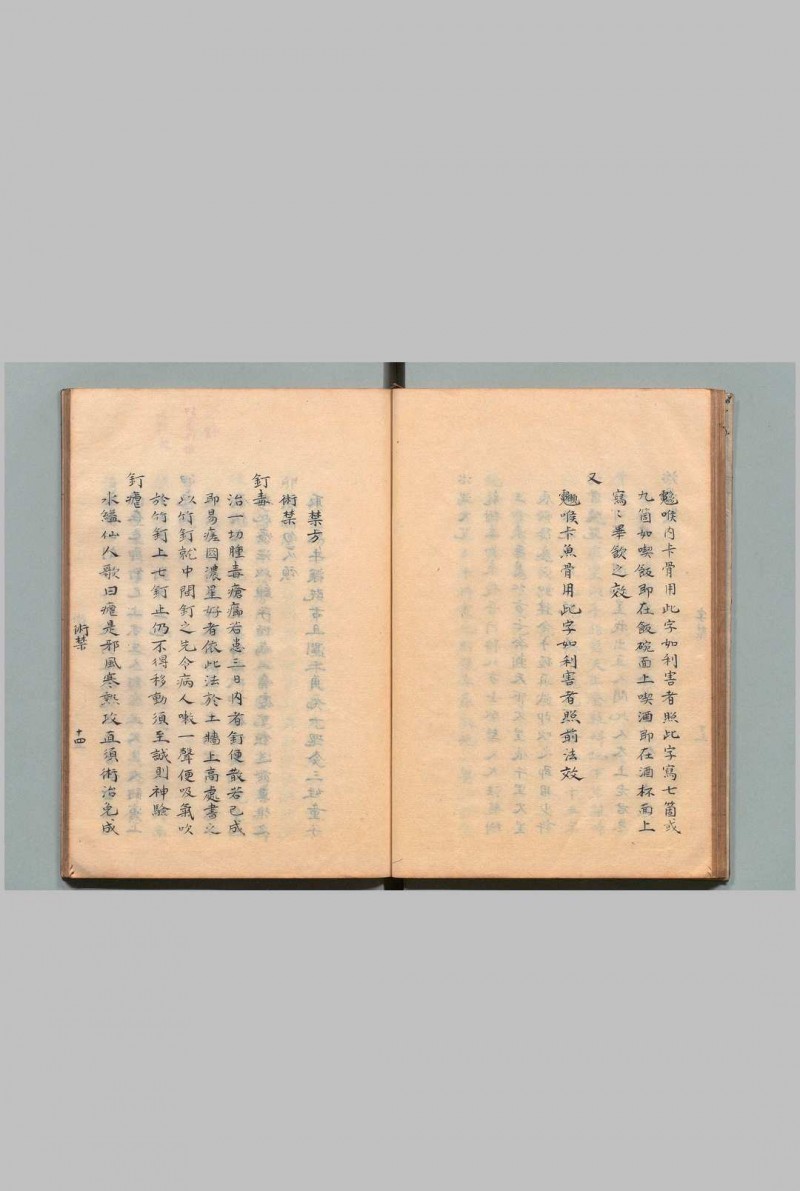 魑喉内卡骨用此字如利害者照此字寫七箇或
九箇如喫飯即在飯碗面上喫酒即在酒杯面上
寫〻畢飲之效
又
魑喉卡魚骨用此字如利害者照前法效
禁方
術禁
釘毒
治一切腫毒瘡癤若患三日内者釘便散若已成
即易痊因濃星好者依此法於土牆上高處書之
以竹釘就中間釘之先令病人嗽一聲便吸氣吹
於竹釘上七釘止仍不得移動須至誠則神驗
釘瘧
水鑑仙人歌曰瘧是邪風寒熱攻直須術治免成
術禁
十四